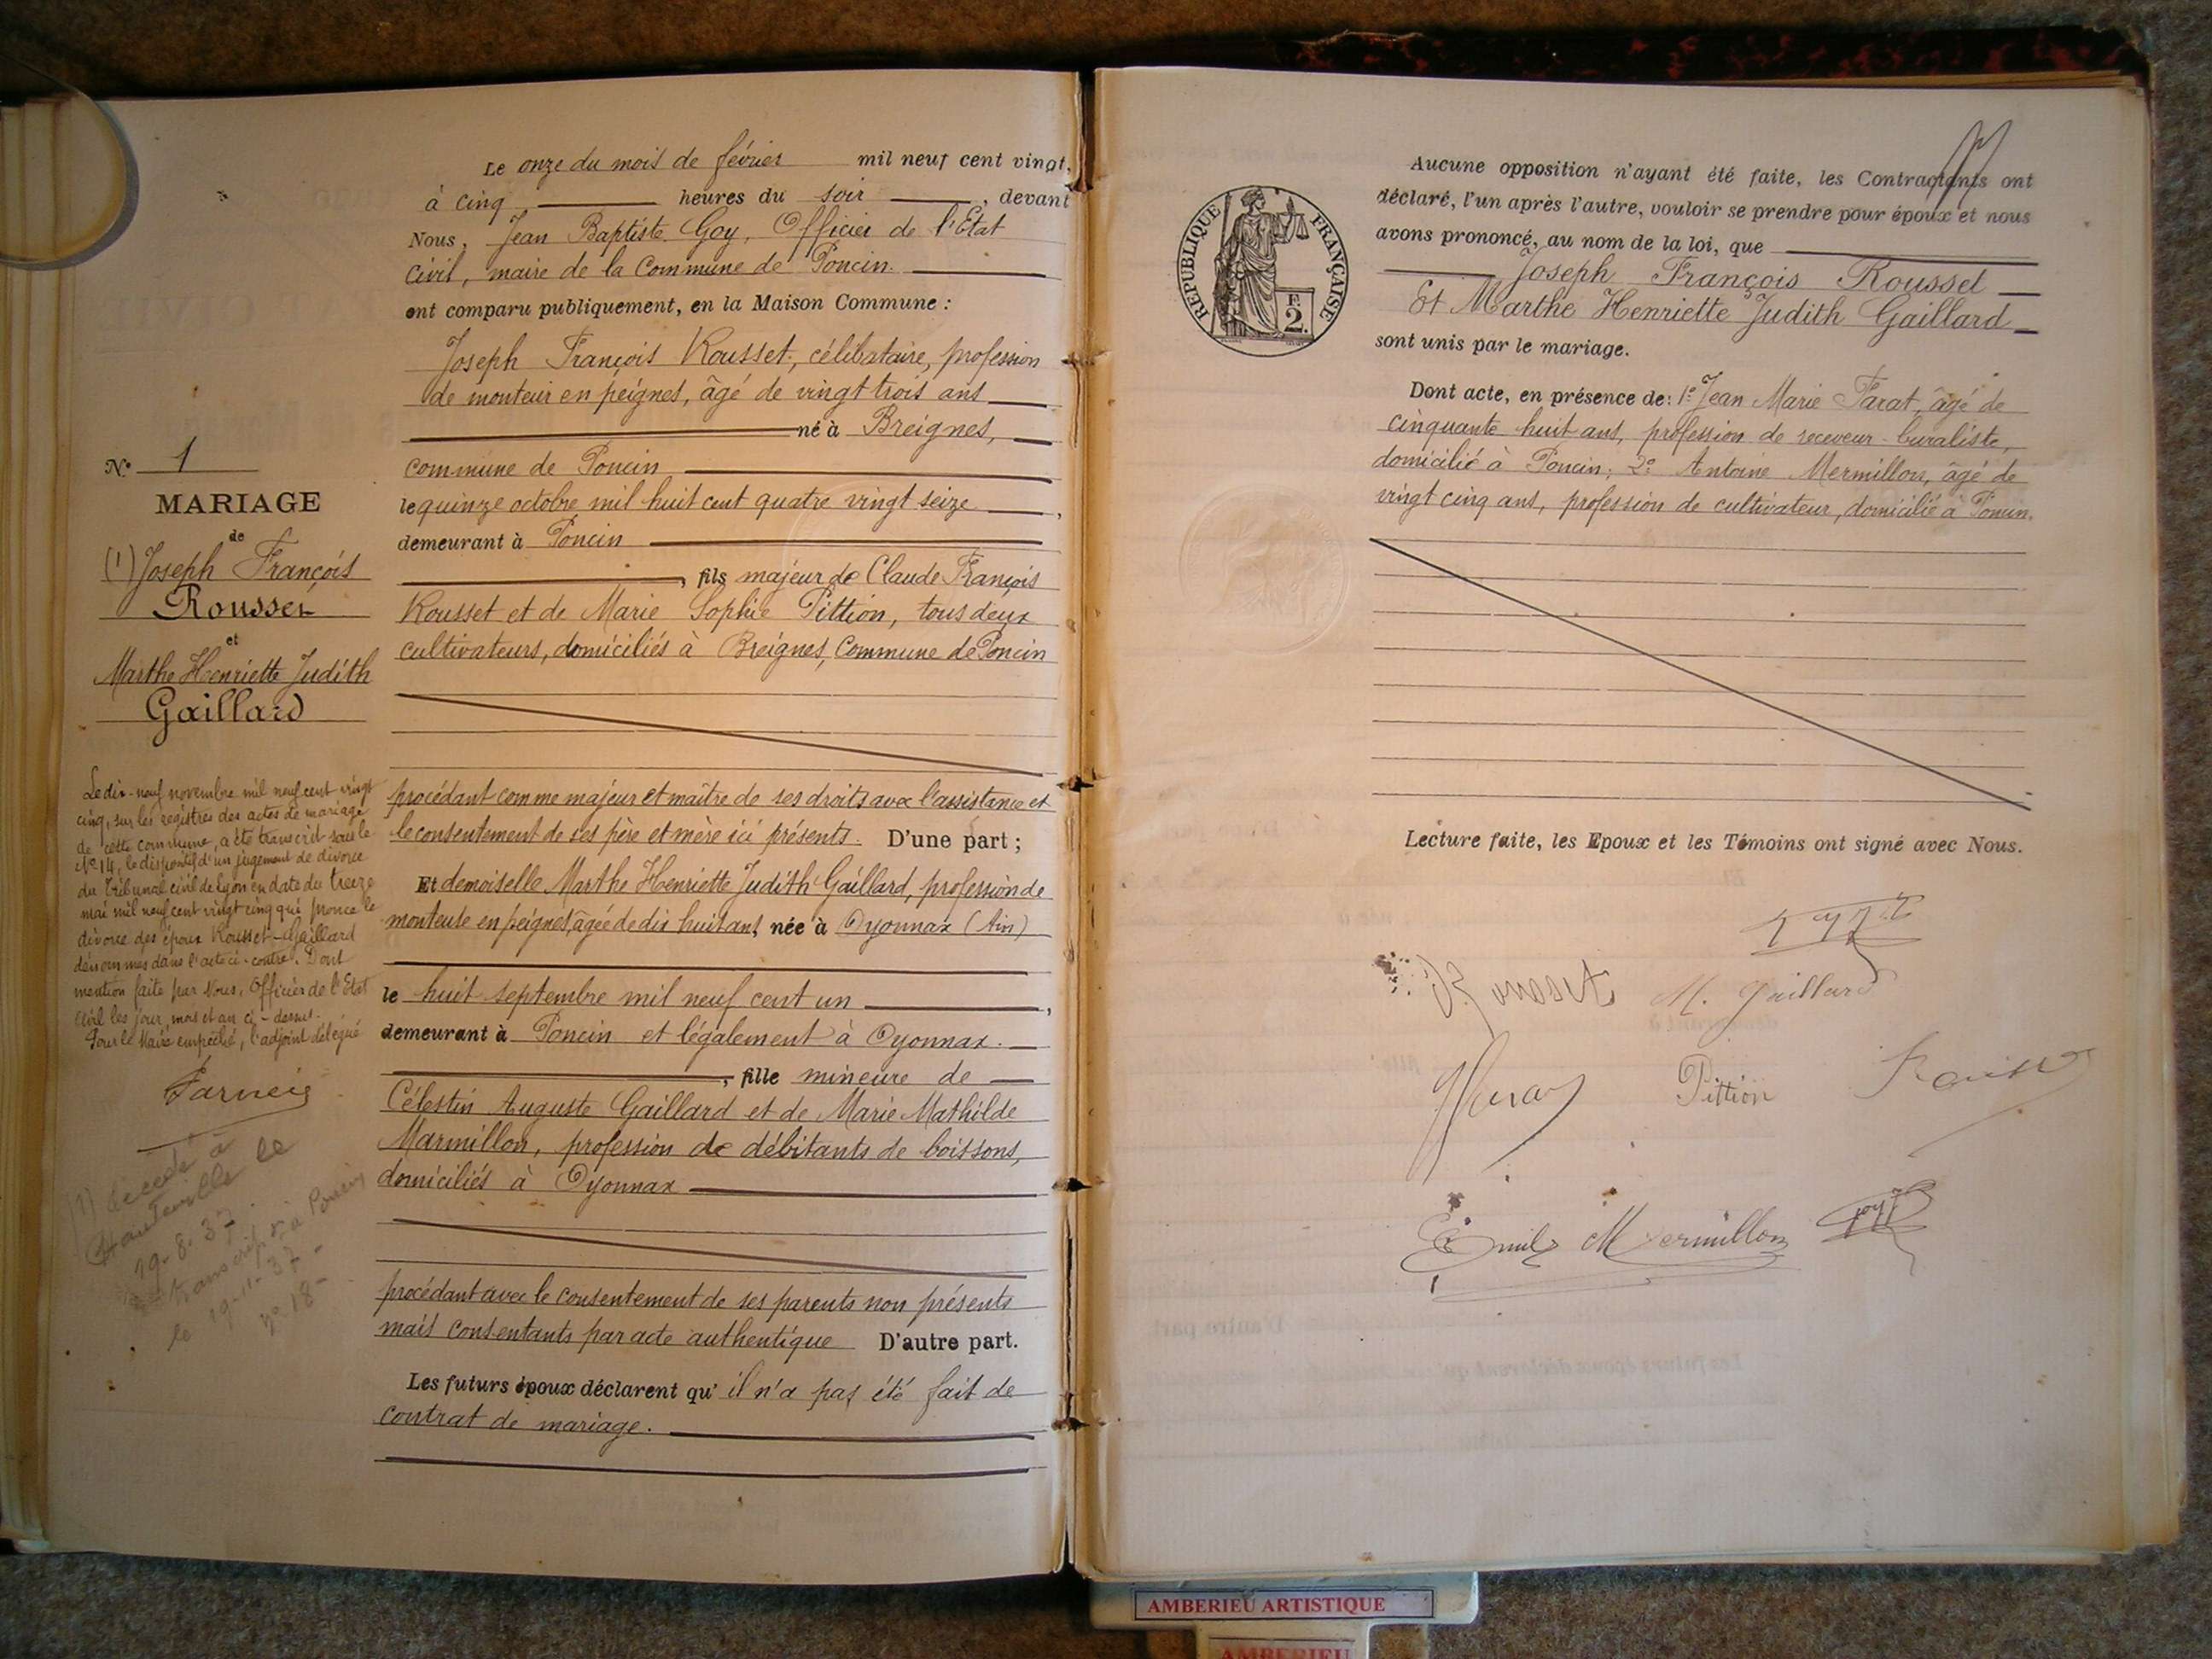 Le onze du mois de février mil neuf cent vingt,
à cinq heures du soir, devant
Nous, Jean Baptiste Goy, Officier de l'Etat
civil, maire de la Commune de Poncin.
ont comparu publiquement, en la Maison Commune :
Joseph François Rousset, célibataire, profession
de monteur en peignes, âgé de vingt trois ans
né à Breignes,
commune de Poncin
le quinze octobre mil huit cent quatre vingt seize,
demeurant à Poncin
, fils majeur de Claude François
Rousset et de Marie Sophie Pittion, tous deux
cultivateurs, domiciliés à Breignes, Commune de Poncin
procédant comme majeur et maître de ses droits avec l'assistance et
le consentement de ses père et mère ici présents. D'une part ;
Et demoiselle Marthe Henriette Judith Gaillard, profession de
monteuse en peignes, âgée de dix huit ans, née à Oyonnax (Ain)
le huit septembre mil neuf cent un,
demeurant à Poncin et légalement à Oyonnax.
, fille mineure de
Célestin Auguste Gaillard et de Marie Mathilde
Marmillon, profession de débitants de boissons,
domiciliés à Oyonnax
procédant avec le consentement de ses parents non présents
mais consentants par acte authentique D'autre part.
Les futurs époux déclarent qu'il n'a pas été fait de
contrat de mariage.
No 1
MARIAGE
de
(1) Joseph François
Rousset
et
Marthe Henriette Judith
Gaillard
Le dix-neuf novembre mil neuf cent vingt
cinq, sur les registres des actes de mariage
de cette commune, a été transcrit sous le
No 14, le dispositif d'un jugement de divorce
du Tribunal civil de Lyon en date du treize
mai mil neuf cent vingt cinq qui pronce le
divorce des époux Rousset-Gaillard
dénommés dans l'acte ci-contre. Dont
mention faite par Nous, Officier de l'Etat
civil les jour, mois et an ci-dessus.
Pour le Maire empêché, l'adjoint délégué
(1) décédé à
Hauteville le
19-8-37.
transcript à Poncin
le 19-11-37-
No 18-
REPUBLIQUE FRANÇAISE
F.
2.
Aucune opposition n'ayant été faite, les Contractants ont
déclaré, l'un après l'autre, vouloir se prendre pour époux et nous
avons prononcé, au nom de la loi, que
Joseph François Rousset
Et Marthe Henriette Judith Gaillard
sont unis par le mariage.
Dont acte, en présence de: 1° Jean Marie Farat, âgé de
cinquante huit ans, profession de receveur-buraliste,
domicilié à Poncin; 2° Antoine Mermillon, âgé de
vingt cinq ans, profession de cultivateur, domicilié à Poncin.
Lecture faite, les Epoux et les Témoins ont signé avec Nous.
M. Gaillard
Pittion
Emile Mermillon
AMBERIEU ARTISTIQUE
AMBERIEU